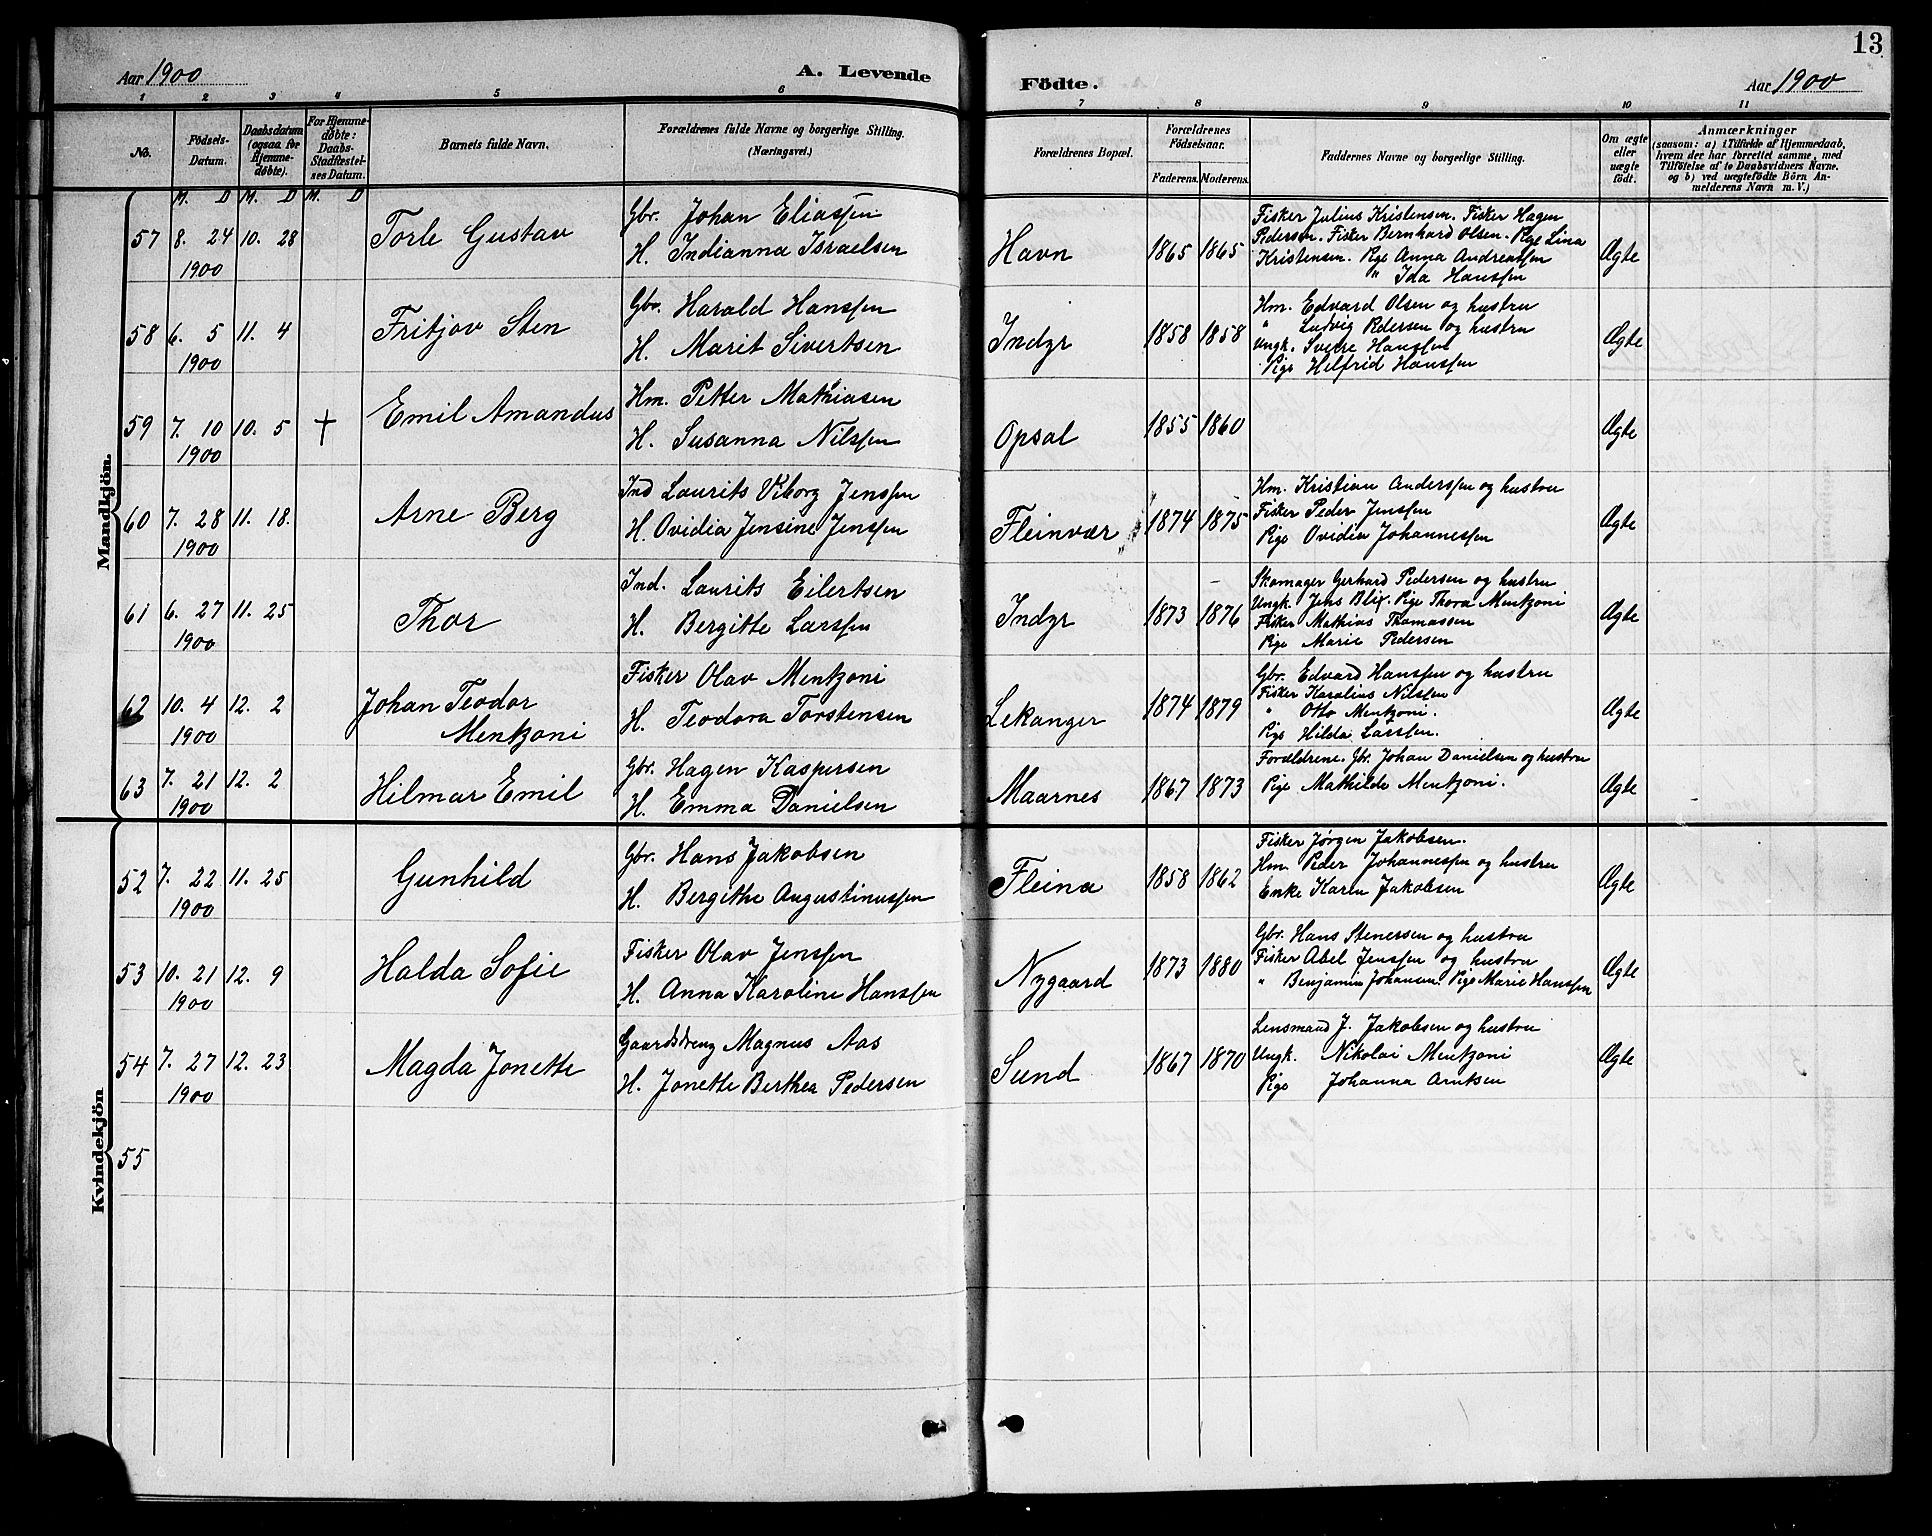 Aar 1900
A. Levende
Födte.
Aar 1900
13
1 2 3 4 5 6 7 8 9 10 11
No.
Födsels-Datum.
Daabsdatum (ogsaa for Hjemmedöbte).
For Hjemmedöbte: Daabs-Stadfæstelses Datum.
Barnets fulde Navn.
Forældrenes fulde Navne og borgerlige Stilling. (Næringsvei.)
Forældrenes Bopæl.
Forældrenes Födselsaar.
Faderens. Moderens.
Faddernes Navne og borgerlige Stilling.
Om ægte eller uægte födt.
Anmærkninger
(saasom: a) i Tilfælde af Hjemmedaab, hvem der har forrettet samme, med Tilföielse af to Daabsvidners Navne, og b) ved uægtefödte Börn Anmelderens Navn m. V.)
M. D M. D M. D
Mandkjön.
57 8. 24 1900 10. 28 Torle Gustav
Gbr. Johan Eliassen
H. Indianna Israelsen
Havn 1865 1865
Fisker Julius Kristensen. Fisker Hagen
Pedersen. Fisker Bernhard Olsen. Pige Lina
Kristensen. Pige Anna Andreassen
" Ida Hanssen
Ægte
58 6. 5 1900 11. 4 Fritjov Sten
Gbr. Harald Hanssen
H. Marit Sivertsen
Indyr 1858 1858
Hm. Edvard Olsen og hustru
" Ludvig Pedersen og hustru
Ungk. Sverre Hanssen
Pige Helfrid Hanssen
Ægte
59 7. 10 1900 10. 5 † Emil Amandus
Hm. Petter Mathiasen
H. Susanna Nilssen
Opsal 1855 1860
Ægte
60 7. 28 1900 11. 18. Arne Berg
Ind Laurits Viborg Jenssen
H. Ovidia Jensine Jenssen
Fleinvær 1874 1875
Hm. Kristian Anderssen og hustru
Fisker Peder Jenssen
Pige Ovidia Johannessen
Ægte
61 6. 27 1900 11. 25 Thor
Ind. Laurits Eilertsen
H. Bergitte Larssen
Indyr 1873 1876
Skomager Gerhard Pedersen og hustru
Ungk. Jens Blix. Pige Thora Mentzoni
Fisker Mathias Thomassen
Pige Marie Pedersen
Ægte
62 10. 4 1900 12. 2 Johan Teodor
Mentzoni
Fisker Olav Mentzoni
H. Teodora Torstensen
Lekanger 1874 1879
Gbr. Edvard Hanssen og hustru
Fisker Karolius Nilssen
" Otto Mentzoni.
Pige Hilda Larssen.
Ægte
63 7. 21 1900 12. 2 Hilmar Emil
Gbr. Hagen Kaspersen
H. Emma Danielsen
Maarnes 1867 1873
Forældrene. Gbr. Johan Danielsen og hustru
Pige Mathilde Mentzoni.
Ægte
Kvindekjön
52 7. 22 1900 11. 25 Gunhild
Gbr. Hans Jakobsen
H. Bergithe Augustinussen
Fleina 1858 1862
Fisker Jørgen Jakobsen.
Hm. Peder Johannessen og hustru
Enke Karen Jakobsen
Ægte
53 10. 21 1900 12. 9 Halda Sofie
Fisker Olav Jenssen
H. Anna Karoline Hanssen
Nygaard 1873 1880
Gbr. Hans Stenersen og hustru
Fisker Abel Jenssen og hustru
" Benjamin Johansen. Pige Marie Hanssen
Ægte
54 7. 27 1900 12. 23 Magda Jonette
Gaardsdreng Magnus Aas
H. Jonette Berthea Pedersen
Sund 1867 1870
Lensmand J. Jakobsen og hustru
Ungk. Nikolai Mentzoni
Pige Johanna Arntsen
Ægte
55